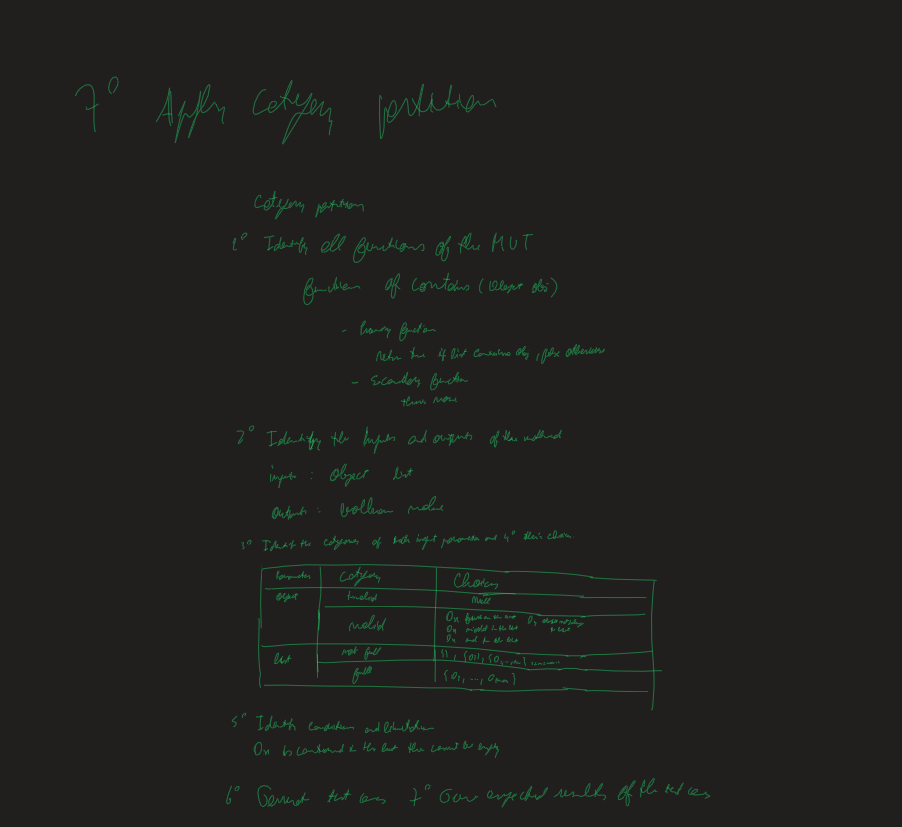 7° Apply Category partition
Category partition
1° Identify all functions of the MUT
function of contains (Object obj)
- Primary function
return true if list contains obj, false otherwise
- Secondary function
throws none
2° Identify the inputs and outputs of the method
inputs : Object list
outputs : boolean value
3° Identify the categories of each input parameter and 4° their choices
Parameter Category Choices
Object Invalid Null
Valid On
On middle in the list
On end
List not full {}, {O1}, {O,
full {O1, ..., Omax}
5° Identify constraints and limitations
On is contained in the list the cannot be empty
6° Generate test cases 7° Give expected results of the test cases